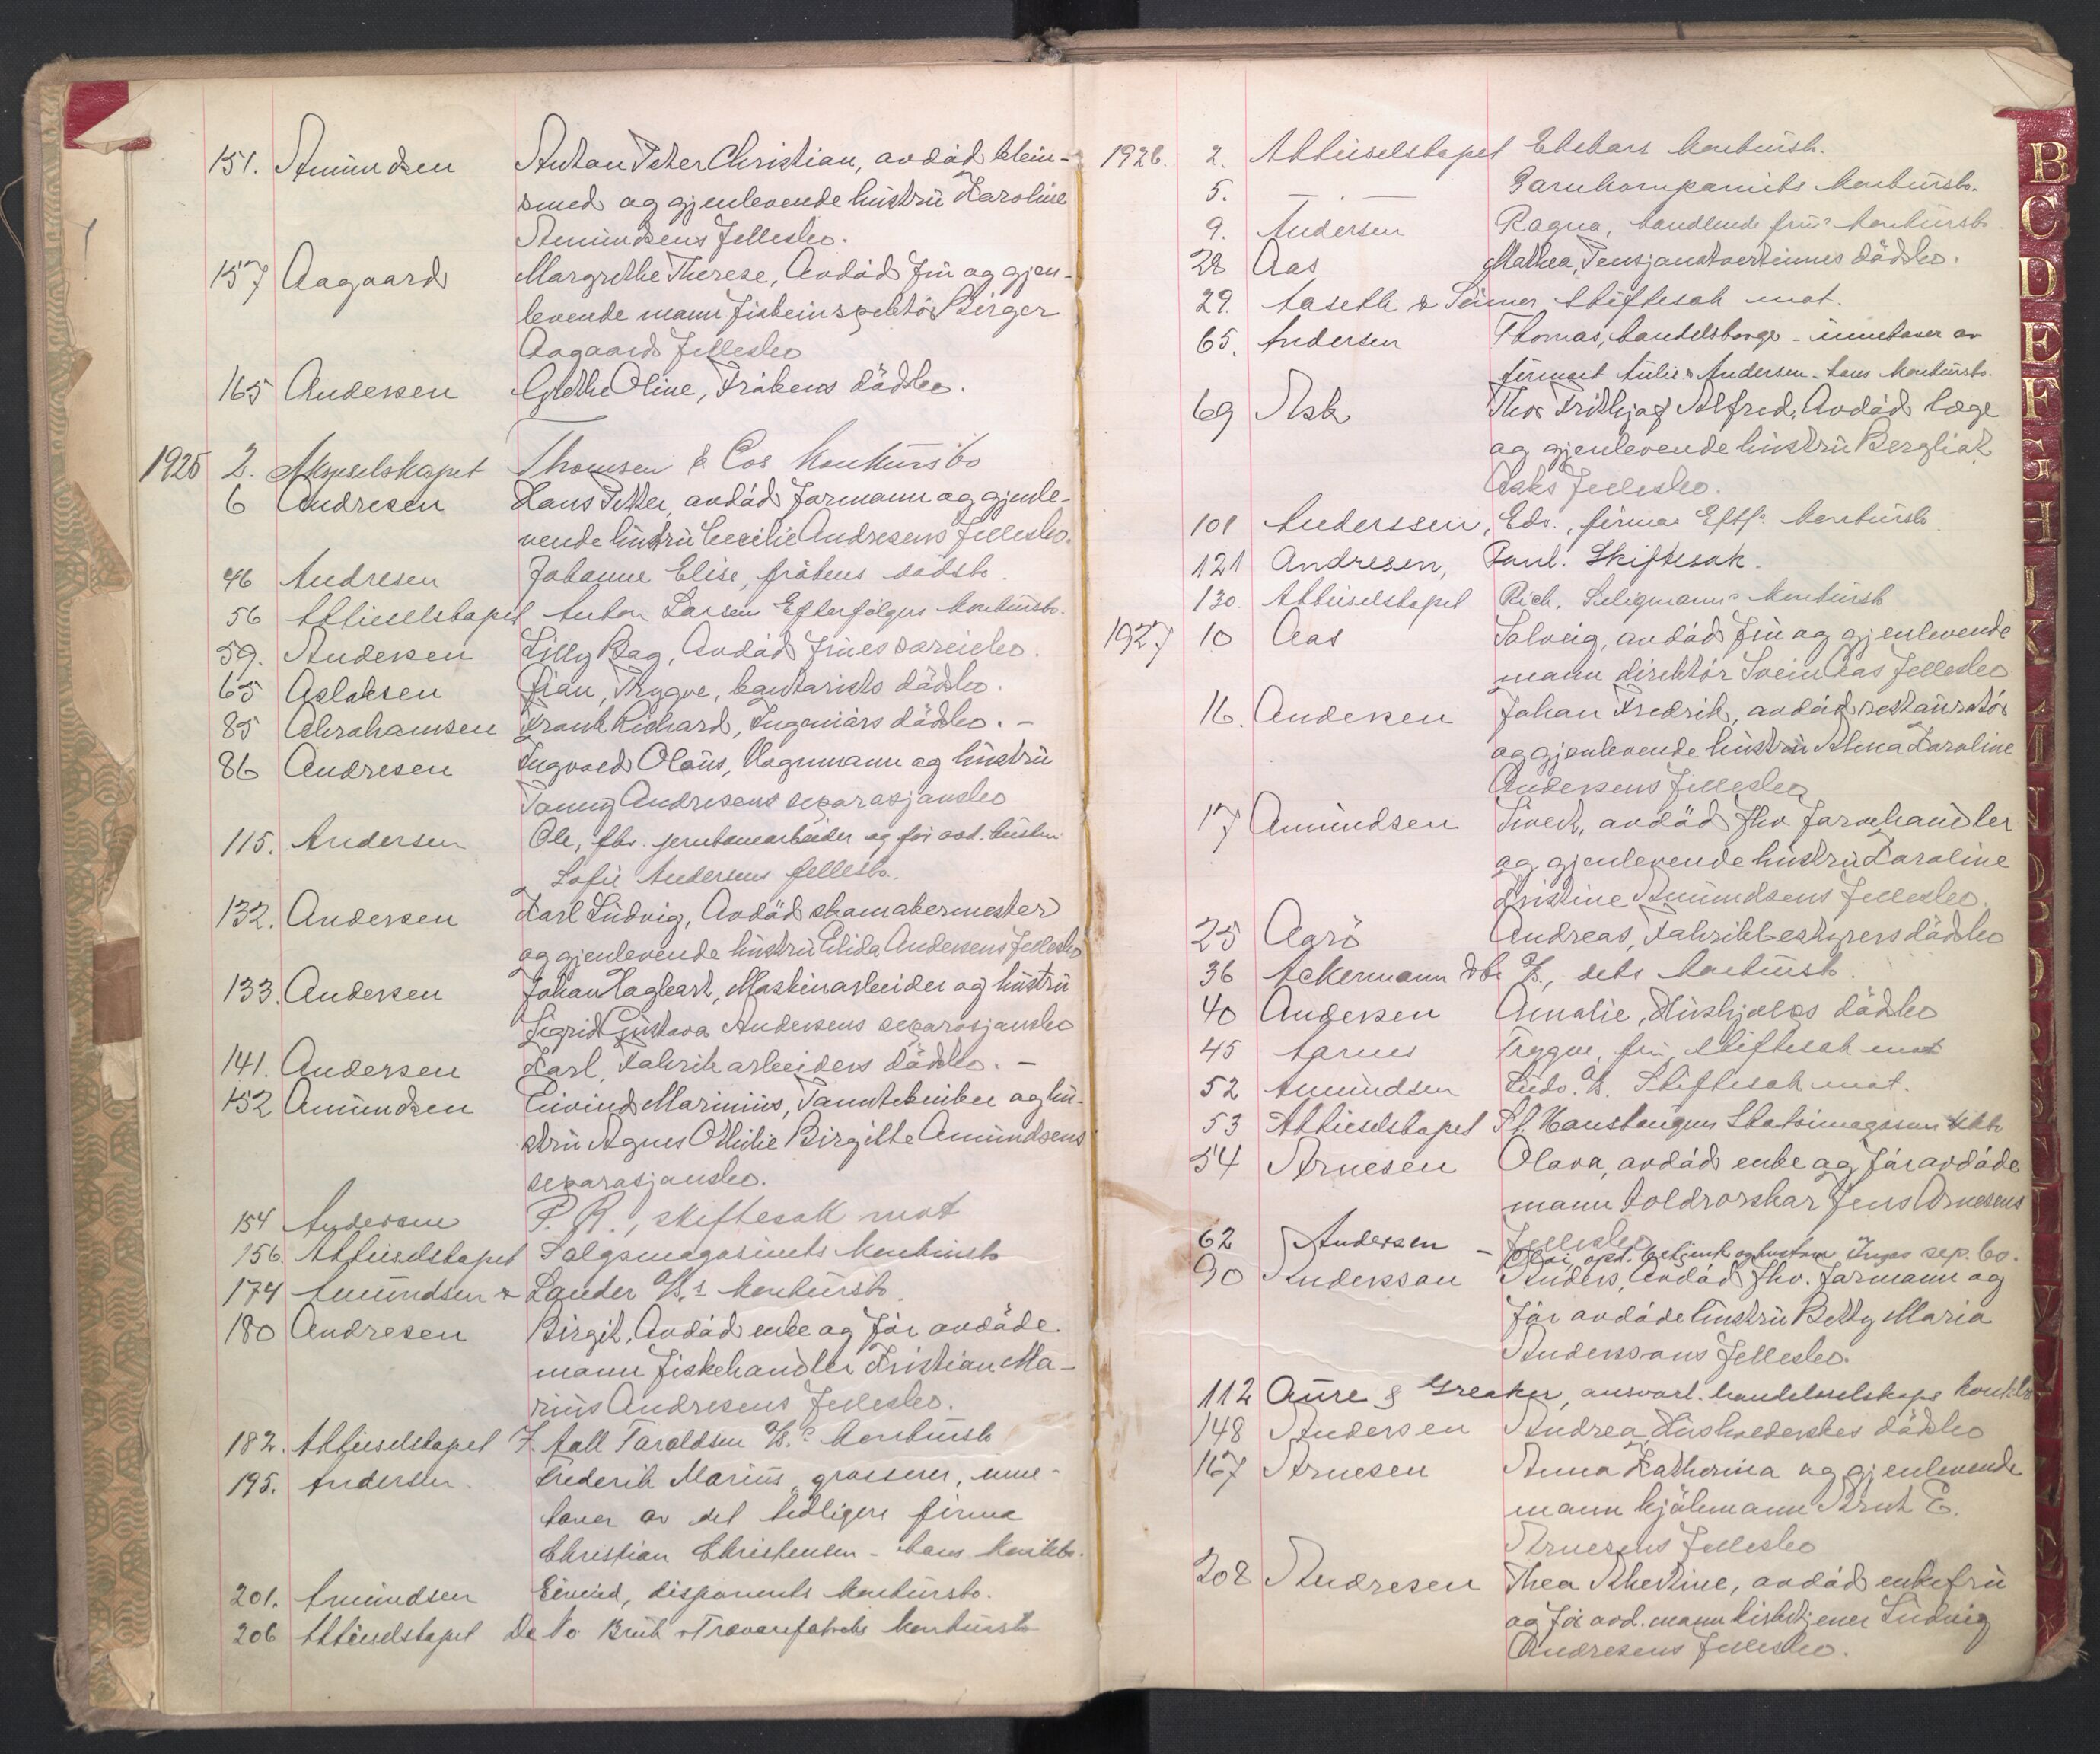 151. Amundsen Anton Peter Christian, avdöd klein-
smed og gjenlevende hustru Karoline
Amundsens fellesbo.
157 Aagaard Margrethe Therese, Avdöd fru og gjen-
levende mann fiskeinspektör Birger
Aagaards fellesbo
165 Andersen Grethe Oline, Frökens dödsbo.
1925 2. Aktieselskapet Thomsen & Cos konkursbo
6 Andresen Hans Petter, avdöd formann og gjenle-
vende hustru Cecilie Andresens fellesbo.
46 Andresen Johanne Elise, frökens dödsbo.
56 Aktieselskapet Anton Larsen Efterfölgers konkursbo.
59. Andersen Lilly Bag, Avdöd frues særeiebo.
65 Aslaksen Trygve, kontorists dödsbo.
85 Abrahamsen Frank Richard, Ingeniörs dödsbo. -
86 Andresen Ingvald Olaus, Vognmann og hustru
Fanny Andresens separasjonsbo
115. Andersen Ole, fhv. jernbanearbeider og för avd. hustru
Sofie Andersens fellesbo.
132. Andersen Karl Ludvig, Avdöd skomakermester
og gjenlevende hustru Elida Andersens fellesbo
133. Andersen Johan Hagbart, Maskinarbeider og hustru
Sigrid Gustava Andersens separasjonsbo
141. Andersen Karl, Fabrikarbeiders dödsbo. -
152 Amundsen Eivind Marinius, Tanntekniker og hu-
stru Agnes Othilie Birgitte Amundsens
separasjonsbo.
154 Andersen P. R., skiftesak mot
156. Aktieselskapet Salgsmagasinets konkursbo
174 Amundsen & Lander A/S.s konkursbo.
180 Andresen Birgit, Avdöd enke og för avdöde
mann fiskehandler Kristian Ma-
rius Andresens fellesbo.
182. Aktieselskapet F. Aall Taraldsen A/S.s konkursbo
195. Andersen. Frederik Marius, grosserer, inne-
haver av det tidligere firma
Christian Christensen - hans konkbo.
201. Amundsen Eivind, disponents konkursbo.
206 Aktieselskapet De No Bruk & Trævarefabriks konkursbo
1926. 2. Aktieselskapet Ekekars konkursb.
5. — — Garnkompaniets konkursbo.
9. Andersen Ragna, handlende frus konkursbo
28 Aas Mathea, Pensjonatvertinnes dödsbo.
29. Aaseth & Seimer, skiftesak mot.
65. Andersen Thomas, handelsborger - innehaver av
firmaet Andersen - hans konkursbo.
69 Ask Thor Frithjof Alfred, Avdöd læge
og gjenlevende hustru Bergliot
Asks fellesbo.
101 Anderssen, Edv., firma Eftf.s konkursbo
121 Andresen, Paul. Skiftesak.
130. Aktieselskapet Rich. Seligmanns konkursb
1927 10 Aas Solveig, avdöd fru og gjenlevende
mann direktör Svein Aas fellesbo
16. Andersen Johan Fredrik, avdöd restauratör
og gjenlevende hustru Alma Karoline
Andersens fellesbo
17 Amundsen Sivert, avdöd fhv farvehandler
og gjenlevende hustru Karoline
Kristine Amundsens fellesbo.
25 Agrö Andreas, Fabrikkbestyrers dödsbo
36 Ackermann & Co A/S., dets konkursb.
40 Andersen Amalie, Hushjelps dödsbo
45 Aarnes Trygve, fru, skiftesak mot
52 Amundsen Ludv. A/S. Skiftesak mot.
53 Aktieselskapet St. Hanshaugen Skotöimagasin kkbo
54 Arnesen Olava, avdöd enke og för avdöde
mann toldrorskar Jens Arnesens
fellesbo
62 Andersen - opd. betjent og hustru Ingas sep. bo.
90 Andersson Anders, Avdöd fhv. formann og
för avdöde hustru Betty Maria
Anderssons fellesbo.
112 Aure & Greaker, ansvarl. handelsselskaps konkbo
148 Andersen Andrea, Husholderskes dödsbo
167 Arnesen Anna Katherina og gjenlevende
mann Arnt E.
Arnesens fellesbo
208 Andresen Thea Albertine, avdöd enkefru
og för avd. mann kirketjener Ludvig
Andresens fellesbo.
B
C
D
E
F
G
H
J
K